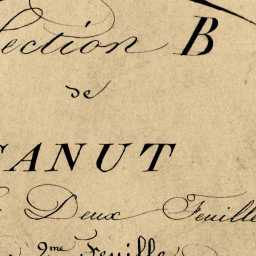 Section B
de
CANUT
Deux Feuille
2me Feuille